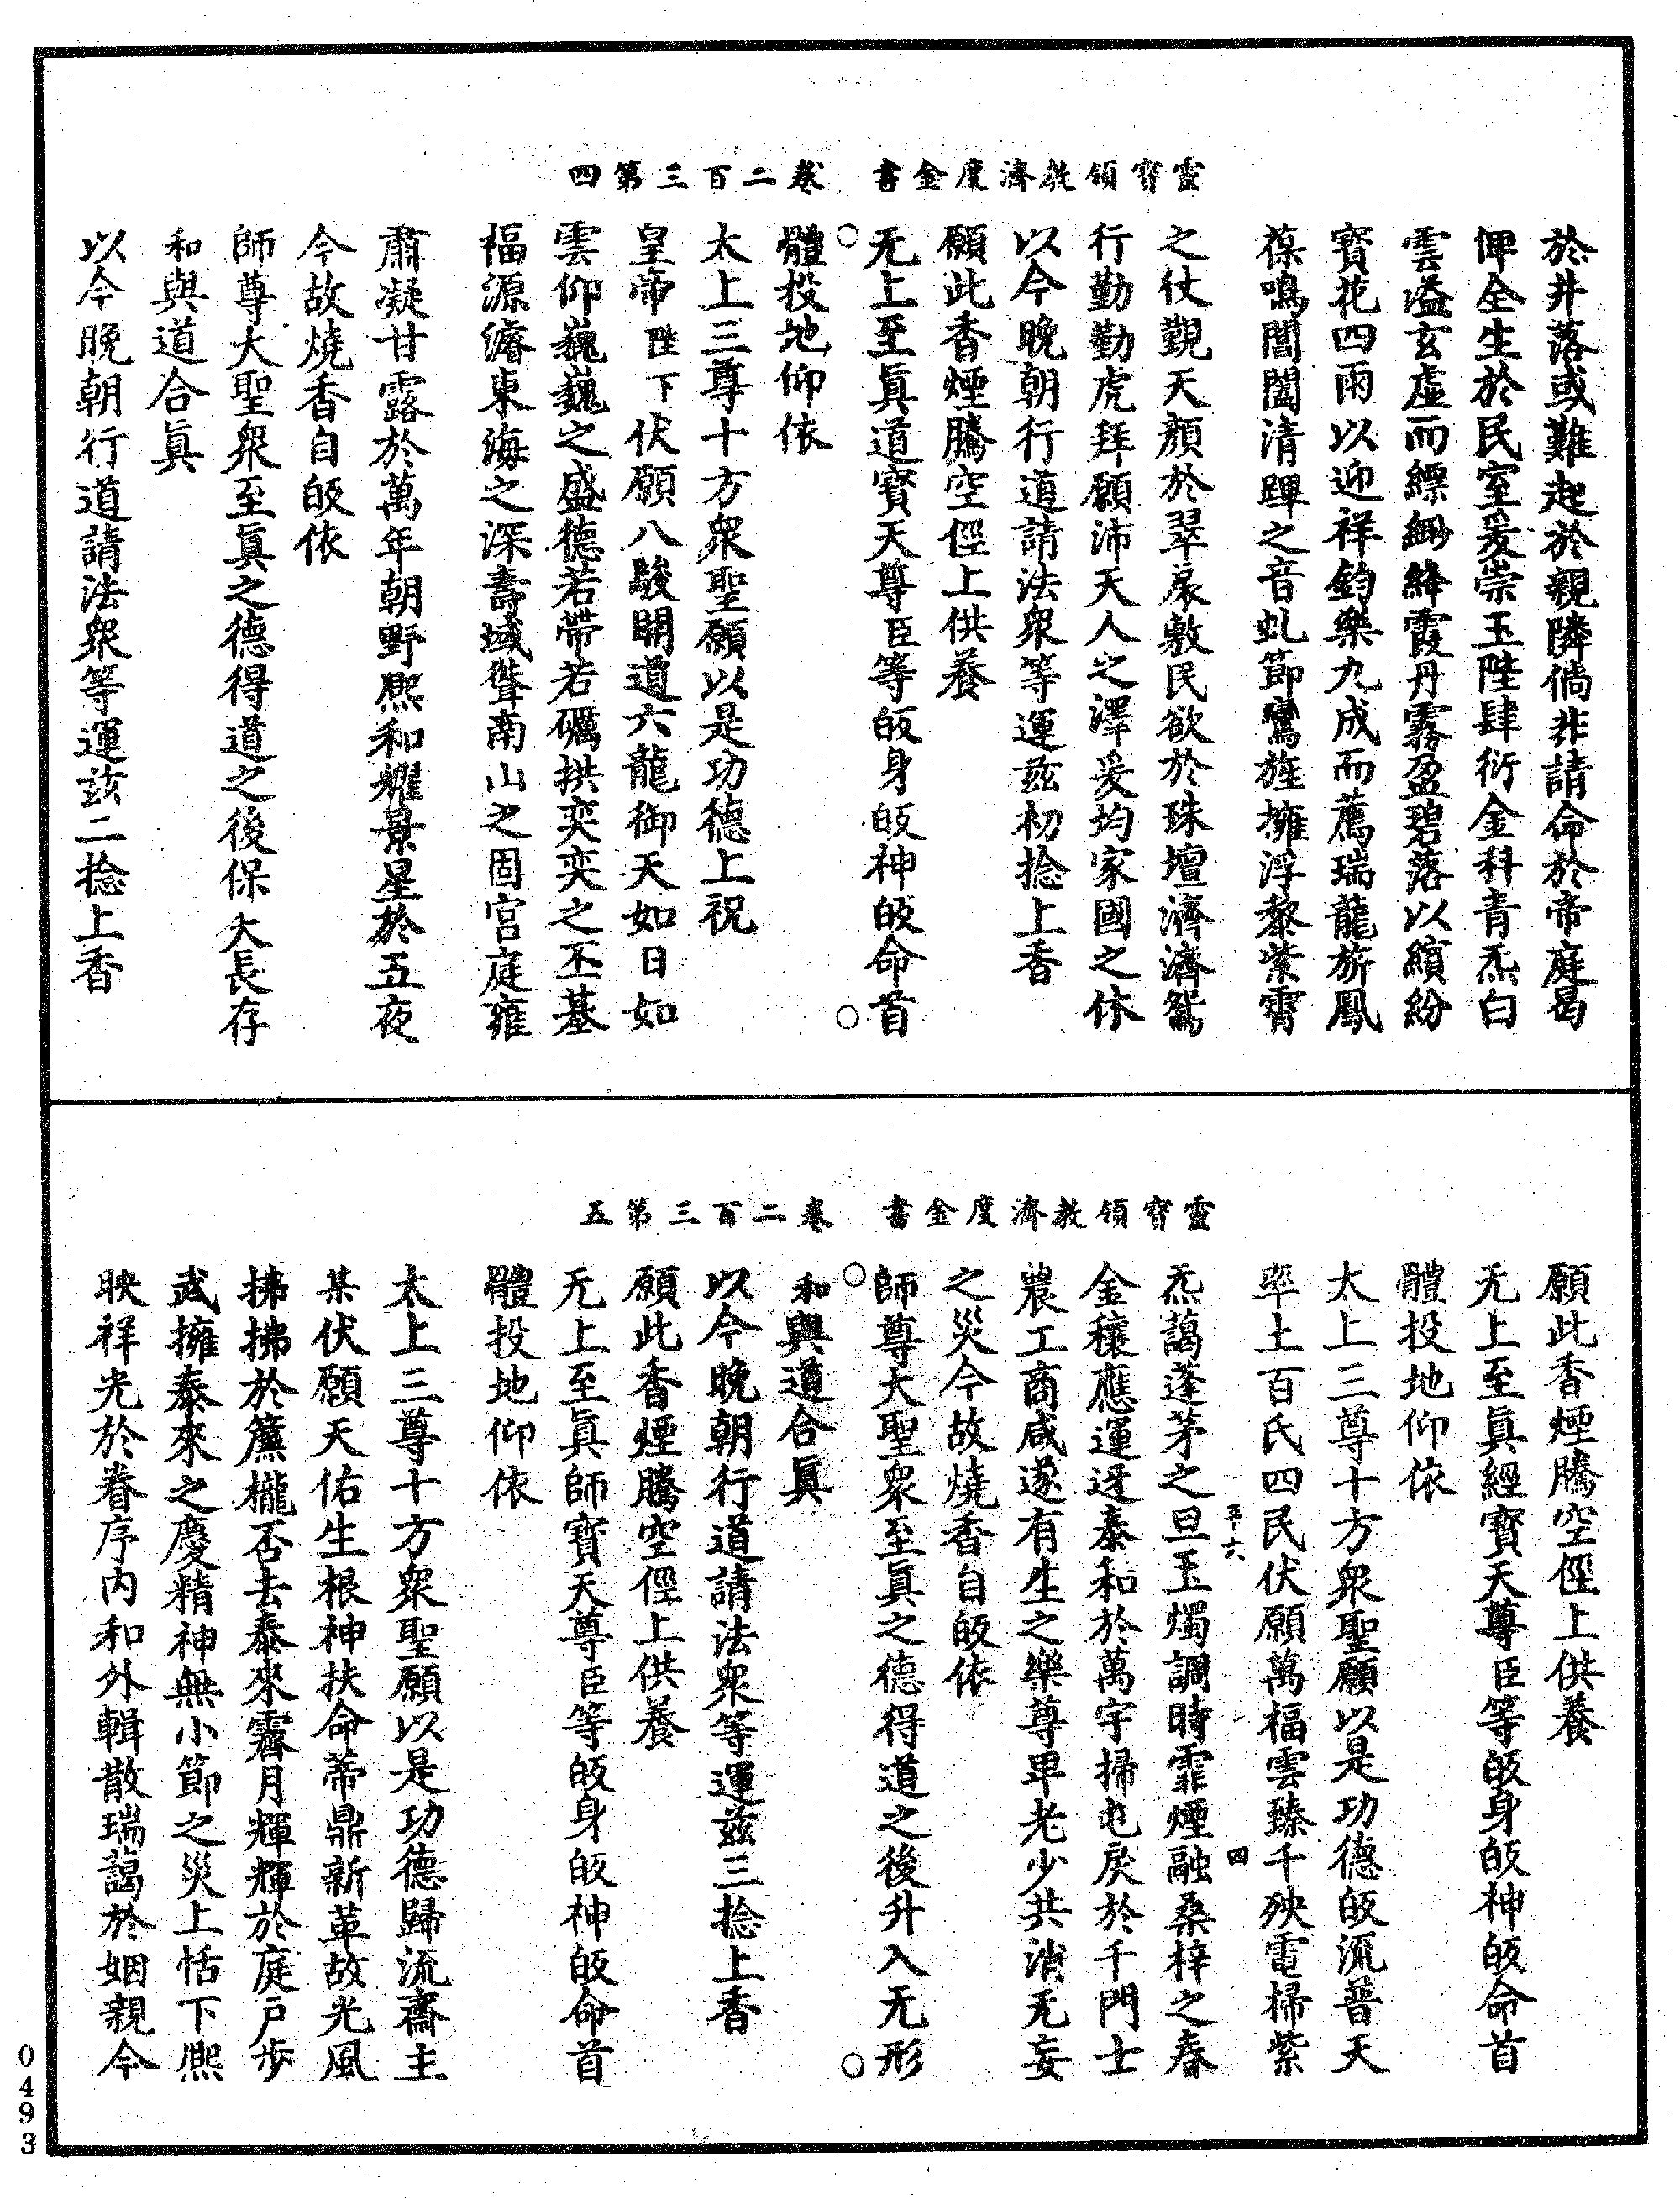 靈寶領教濟度金書　卷二百三第四
於井落或難起於親隣倘非請命於帝庭曷
俾全生於民室爰崇玉陛肆衍金科青炁白
雲溢玄虛而縹緲絳霞丹霧盈碧落以繽紛
寶花四雨以迎祥鈞樂九成而薦瑞龍旂鳳
葆鳴閶闔清蹕之音虬節鸞旌擁浮黎紫霄
之仗觀天顏於翠扆敷民欲於珠壇濟濟鴛
行勤勤虎拜願沛天人之澤爰均家國之休
以今晚朝行道請法衆等運茲初捻上香
願此香煙騰空徑上供養
无上至眞道寶天尊臣等皈身皈神皈命首
體投地仰依
太上三尊十方衆聖願以是功德上祝
皇帝陛下伏願八駿開道六龍御天如日如
雲仰巍巍之盛德若帶若礪拱奕奕之丕基
福源濬東海之深壽域聳南山之固宮庭雍
肅凝甘露於萬年朝野熙和耀景星於五夜
今故燒香自皈依
師尊大聖衆至眞之德得道之後保大長存
和與道合眞
以今晚朝行道請法衆等運茲二捻上香
靈寶領教濟度金書　卷二百三第五
願此香煙騰空徑上供養
无上至眞經寶天尊臣等皈身皈神皈命首
體投地仰依
太上三尊十方衆聖願以是功德皈流普天
率土百氏四民伏願萬福雲臻千殃電掃紫
五十六　四
炁藹蓬茅之旦玉燭調時霏煙融桑梓之春
金穰應運迓泰和於萬宇掃屯戾於千門士
農工商咸遂有生之樂尊卑老少共消无妄
之災今故燒香自皈依
師尊大聖衆至眞之德得道之後升入无形
和與道合眞
以今晚朝行道請法衆等運茲三捻上香
願此香煙騰空徑上供養
无上至眞師寶天尊臣等皈身皈神皈命首
體投地仰依
太上三尊十方衆聖願以是功德歸流齋主
某伏願天佑生根神扶命蒂鼎新革故光風
拂拂於簾櫳否去泰來霽月輝輝於庭戶步
武擁泰來之慶精神無小節之災上恬下熙
映祥光於眷序內和外輯散瑞藹於姻親今
0493